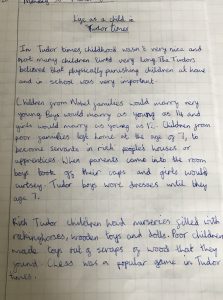 Life as a child in
Tudor times
In Tudor times, childhood wasn't very nice and
not many children lived very long. The Tudors
believed that physically punishing children at home
and in school was very important.
Children from Nobel families would marry very
young. Boys would marry as young as 14 and
girls would marry as young as 12. Children from
poor families left home at the age of 7, to
become servants in rich people's houses or
apprentices. When parents came into the room
boys took of their caps and girls would
curtsey. Tudor boys wore dresses until they
age 7.
Rich Tudor children had nurseries filled with
rocking horses, wooden toys and dolls. Poor children
made toys out of scraps of wood that they
found. Chess was a popular game in Tudor
times.